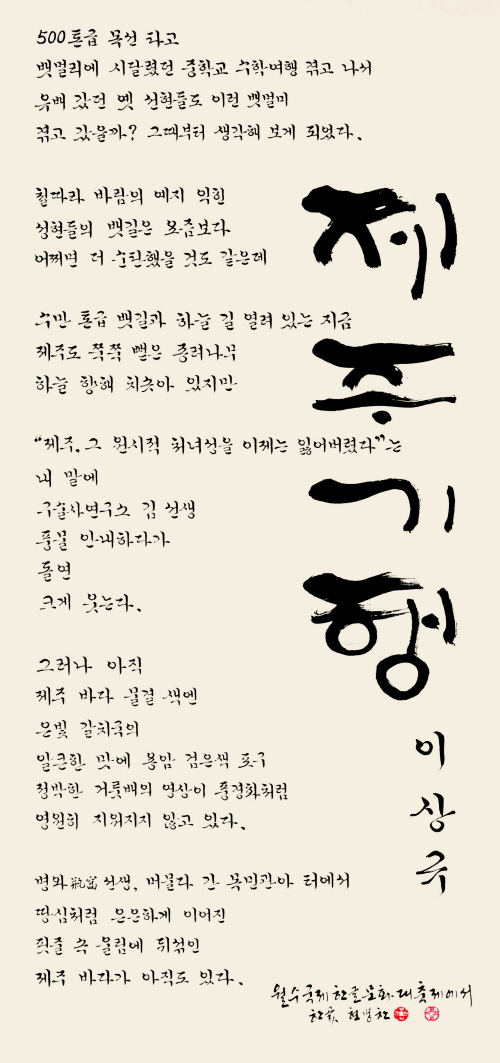 제주기행
이상국
500톤급 목선 타고
뱃멀리에 시달렸던 중학교 수학여행 겪고 나서
유배 갔던 옛 선현들도 이런 뱃멀미
겪고 갔을까? 그때부터 생각해 보게 되었다.
철따라 바람의 예지 익힌
성현들의 뱃길은 요즘보다
어쩌면 더 순탄했을 것도 같은데
수만 톤급 뱃길과 하늘 길 열려 있는 지금
제주도 쭉쭉 뻗은 종려나무
하늘 향해 치솟아 있지만
“제주. 그 원시적 처녀성을 이제는 잃어버렸다”는
내 말에
구술사연구소 김 선생
풍물 안내하다가
돌연
크게 웃는다.
그러나 아직
제주 바다 물결 색엔
은빛 갈치국의
얼큰한 맛에 용암 검은색 포구
정박한 거룻배의 영상이 풍경화처럼
영원히 지워지지 않고 있다.
병와甁窩 선생, 머물다 간 목민관아 터에서
땅심처럼 은은하게 이어진
핏줄 속 울림에 뒤섞인
제주 바다가 아직도 있다.
월수국제한글문화대축제에서
한곬 현병찬